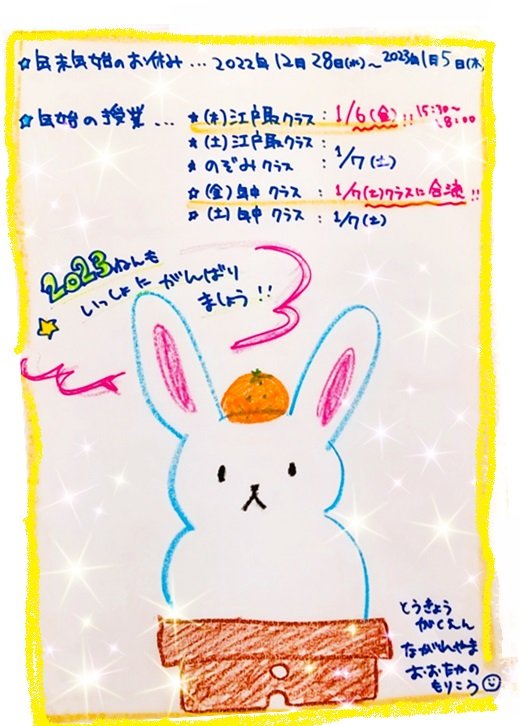 ☆年末年始のお休み...2022年12月28日(水)~2023年1月5日(木)
☆年始の授業... ★(木)江戸取クラス: 1/6(金)!! 15:30~18:00
★(土)江戸取クラス:
★のぞみクラス 1/7(土)
☆(金)年中クラス: 1/7(土)クラスに合流!!
☆(土)年中クラス: 1/7(土)
2023ねんも
いっしょにがんばり
ましょう!!
とうきょう
がくえん
ながれやま
おおたかの
もりころ